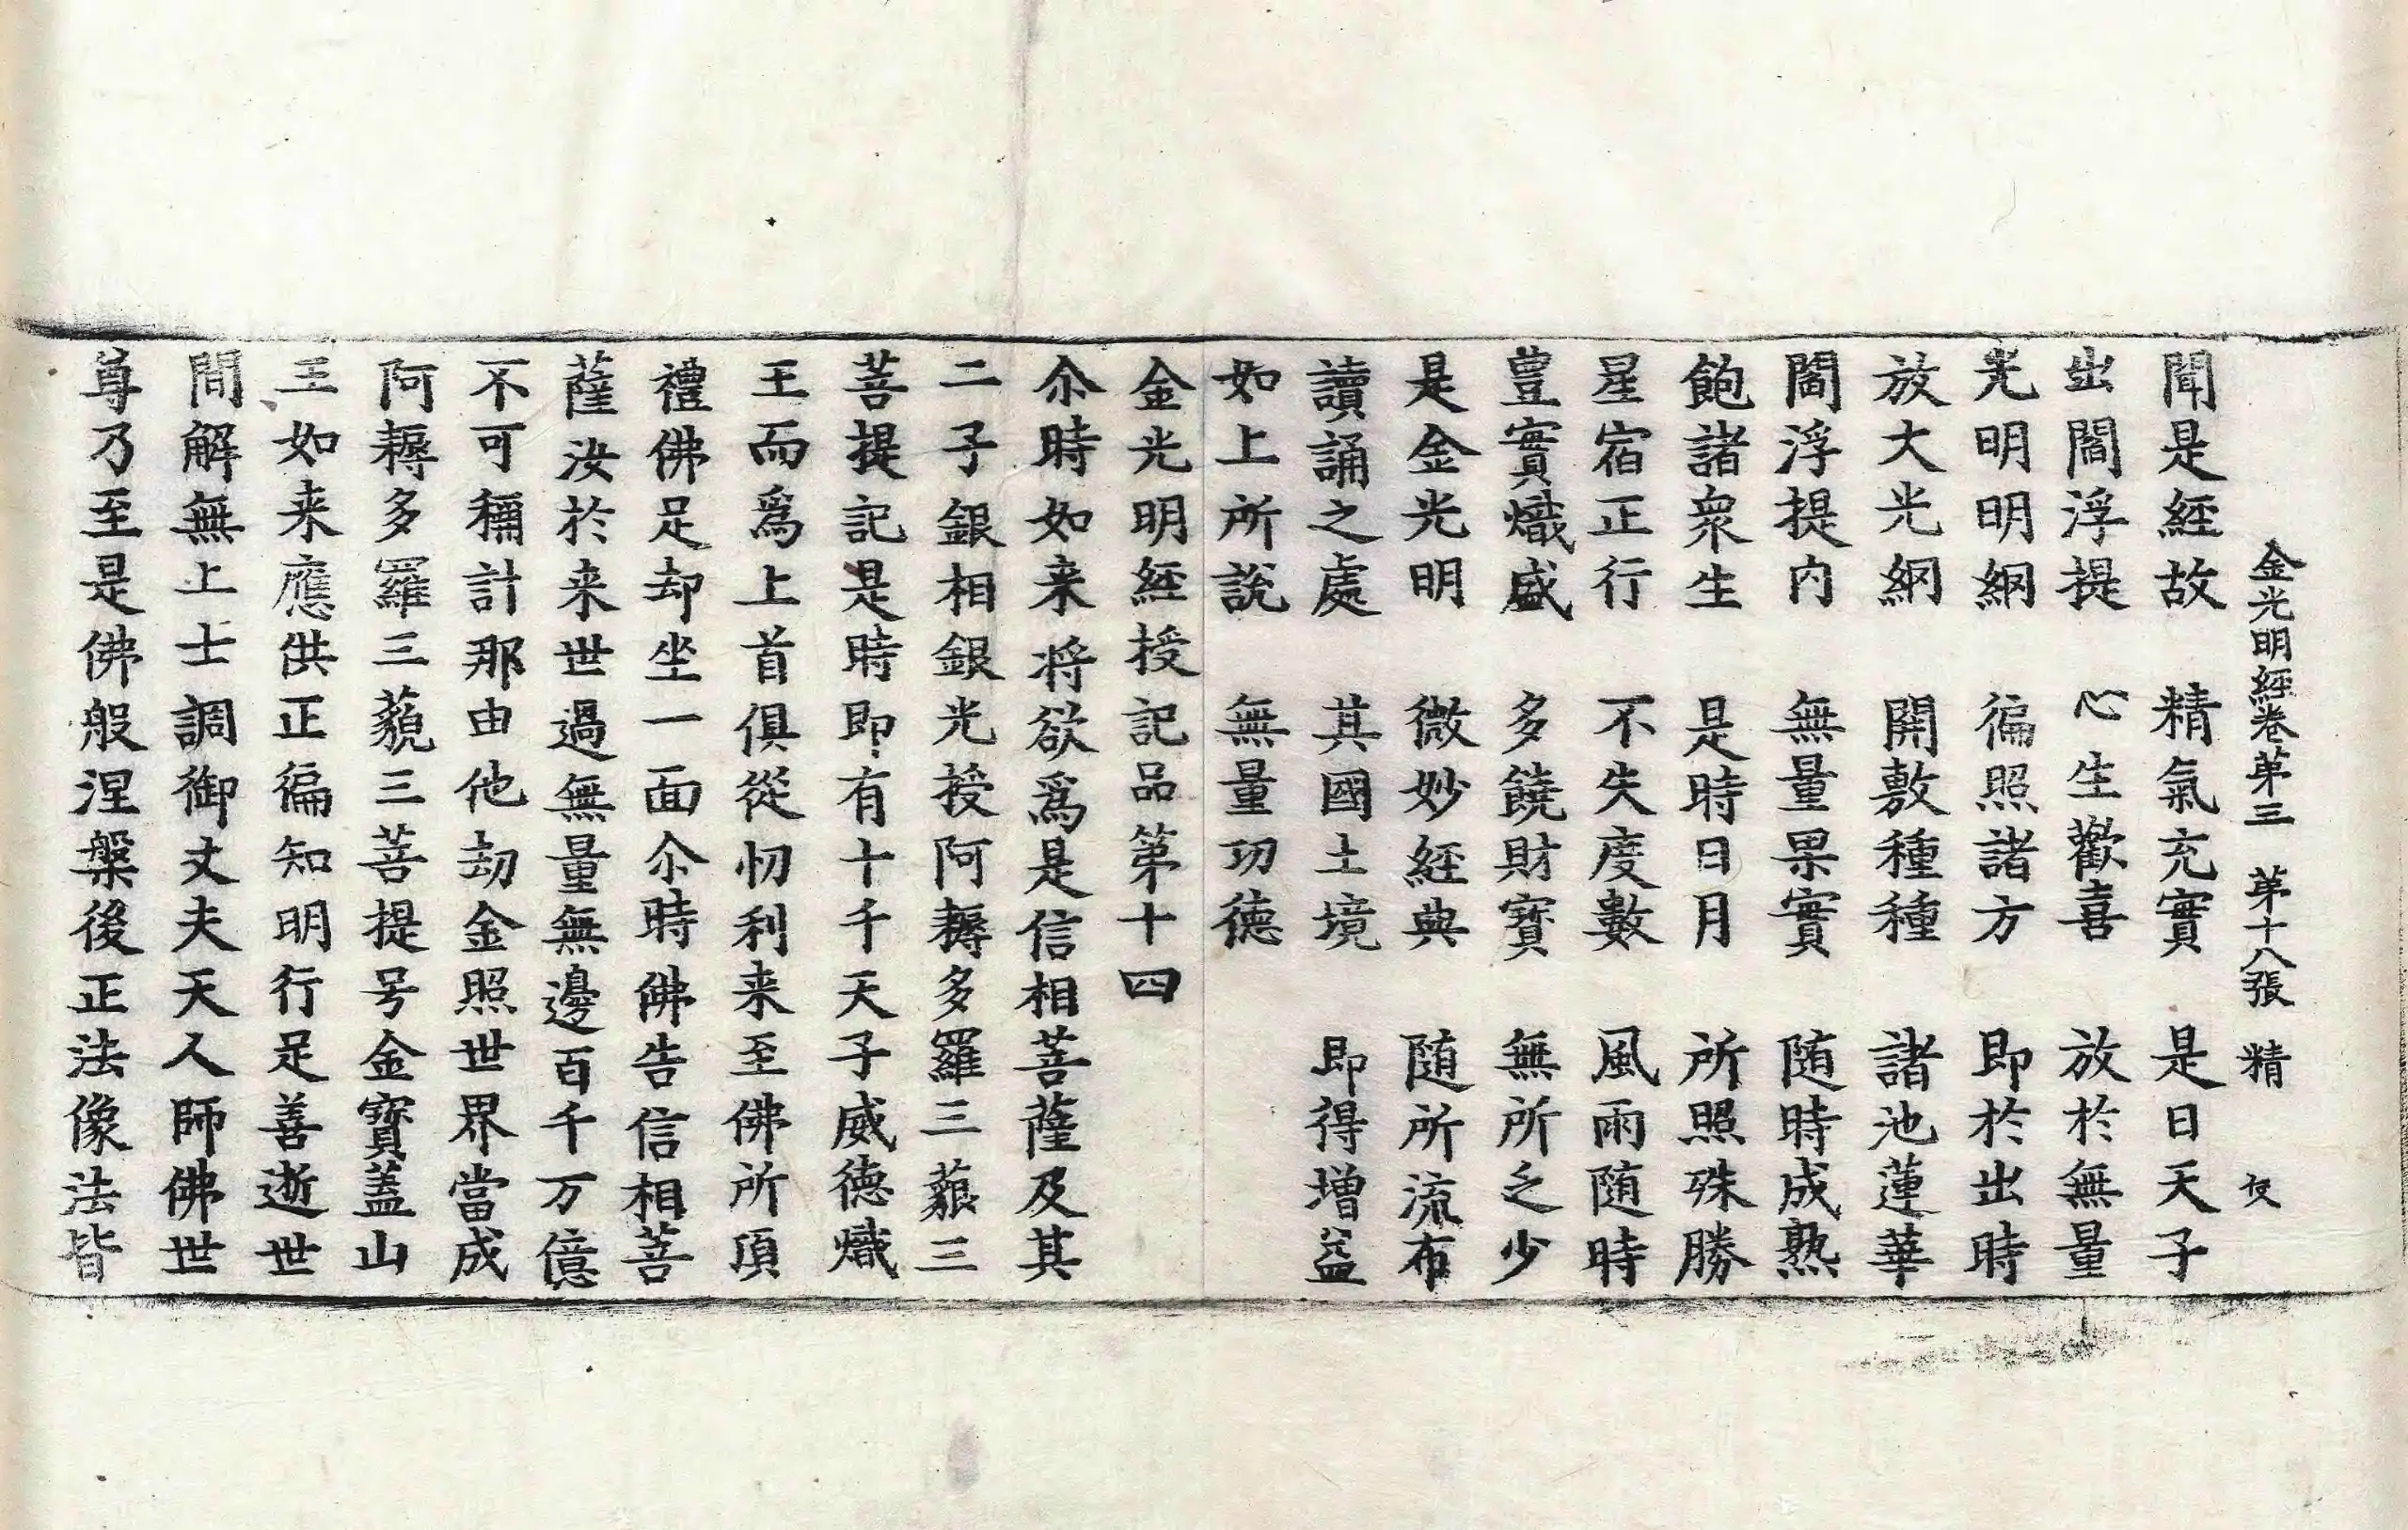 金光明經卷苐三　苐十八張　精
聞是經故　精氣充實　是日天子
出閻浮提　心生歡喜　放於無量
光明明網　徧照諸方　即於出時
放大光網　開敷種種　諸池蓮華
閻浮提内　無量果實　随時成熟
飽諸衆生　是時日月　所照殊勝
星宿正行　不失度數　風雨随時
豊實熾盛　多饒財寶　無所乏少
是金光明　微妙經典　随所流布
讀誦之處　其國土境　即得增益
如上所說　無量功德
金光明經授記品第十四
尒時如来将欲爲是信相菩薩及其
二子銀相銀光授阿耨多羅三藐三
菩提記是時即有十千天子威德熾
王而爲上首俱從忉利来至佛所頂
禮佛足却坐一面尒時佛告信相菩
薩汝於来世過無量無邊百千万億
不可稱計那由他劫金照世界當成
阿耨多羅三藐三菩提号金寶蓋山
王如来應供正徧知明行足善逝世
間解無上士調御丈夫天人師佛世
尊乃至是佛般涅槃後正法像法皆